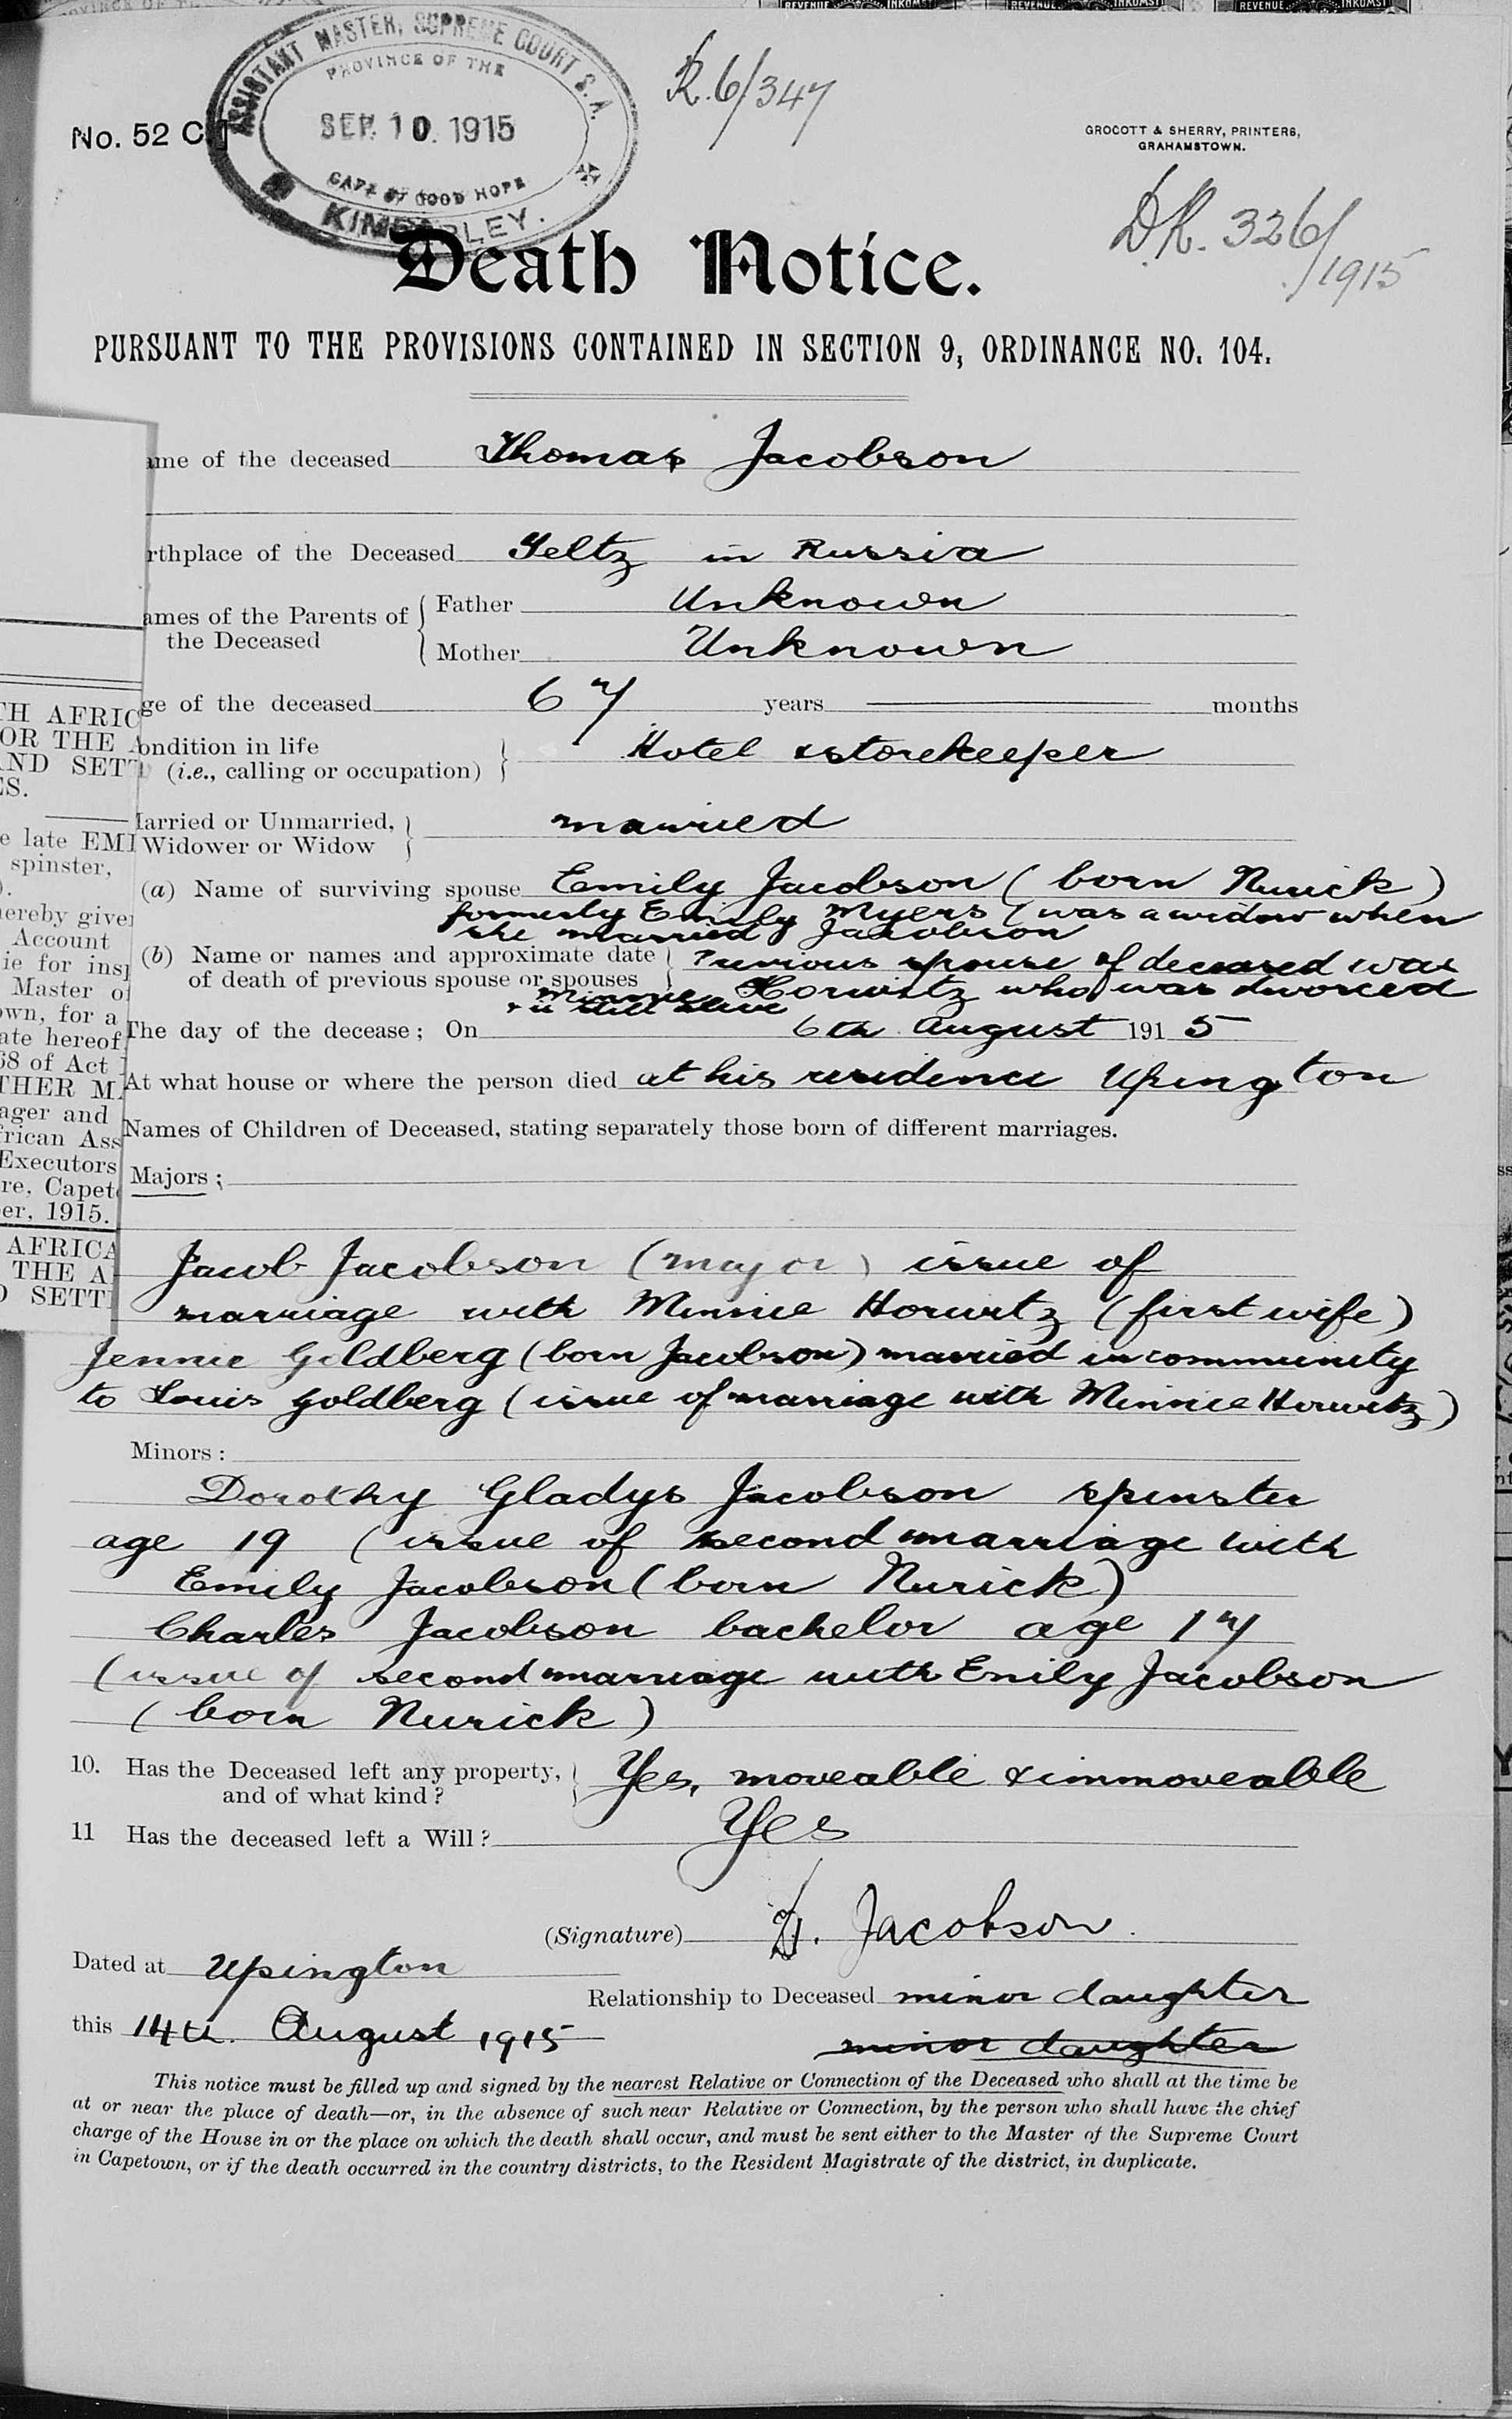 REVENUE INKOMST REVENUE INKOMST REVENUE INKOMST
ASSISTANT MASTER, SUPREME COURT S.A.
PROVINCE OF THE
SEP. 10. 1915
CAPE OF GOOD HOPE
KIMBERLEY.
R.6/347
No. 52 C
GROCOTT & SHERRY, PRINTERS,
GRAHAMSTOWN.
D.R. 326/
1915
Death Notice.
PURSUANT TO THE PROVISIONS CONTAINED IN SECTION 9, ORDINANCE NO. 104.
ame of the deceased Thomas Jacobson
rthplace of the Deceased Yeltz in Russia
ames of the Parents of the Deceased { Father Unknown
Mother Unknown
ge of the deceased 67 years — months
ondition in life
(i.e., calling or occupation) } Hotel & storekeeper
arried or Unmarried,
Widower or Widow } married
(a) Name of surviving spouse Emily Jacobson (born Nurick)
formerly Emily Myers (was a widow when
she married Jacobson
(b) Name or names and approximate date
of death of previous spouse or spouses } Previous spouse of deceased was
Minnie Horwitz who was divorced
& is still alive
The day of the decease; On 6th August 1915
At what house or where the person died at his residence Upington
Names of Children of Deceased, stating separately those born of different marriages.
Majors;
Jacob Jacobson (major) issue of
marriage with Minnie Horwitz (first wife)
Jennie Goldberg (born Jacobson) married in community
to Louis Goldberg (issue of marriage with Minnie Horwitz)
Minors:
Dorothy Gladys Jacobson spinster
age 19 (issue of second marriage with
Emily Jacobson (born Nurick)
Charles Jacobson bachelor age 17
(issue of second marriage with Emily Jacobson
(born Nurick)
10. Has the Deceased left any property,
and of what kind? } Yes, moveable & immoveable
11 Has the deceased left a Will? Yes
(Signature) D. Jacobson.
Dated at Upington
Relationship to Deceased minor daughter
this 14th. August 1915
minor daughter
This notice must be filled up and signed by the nearest Relative or Connection of the Deceased who shall at the time be
at or near the place of death—or, in the absence of such near Relative or Connection, by the person who shall have the chief
charge of the House in or the place on which the death shall occur, and must be sent either to the Master of the Supreme Court
in Capetown, or if the death occurred in the country districts, to the Resident Magistrate of the district, in duplicate.
TH AFRIC
OR THE A
AND SETT
ES.
e late EMI
spinster,
).
hereby give
Account
ie for insp
Master of
own, for a
ate hereof
68 of Act
THER M.
ager and
frican Ass
Executors
re, Capet
er, 1915.
AFRICA
THE A
SETT